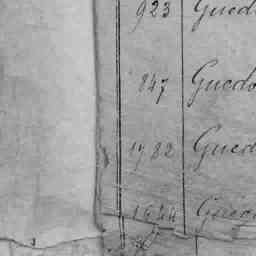 923 Gued
847 Guedo
1782 Gued
1624 Gued